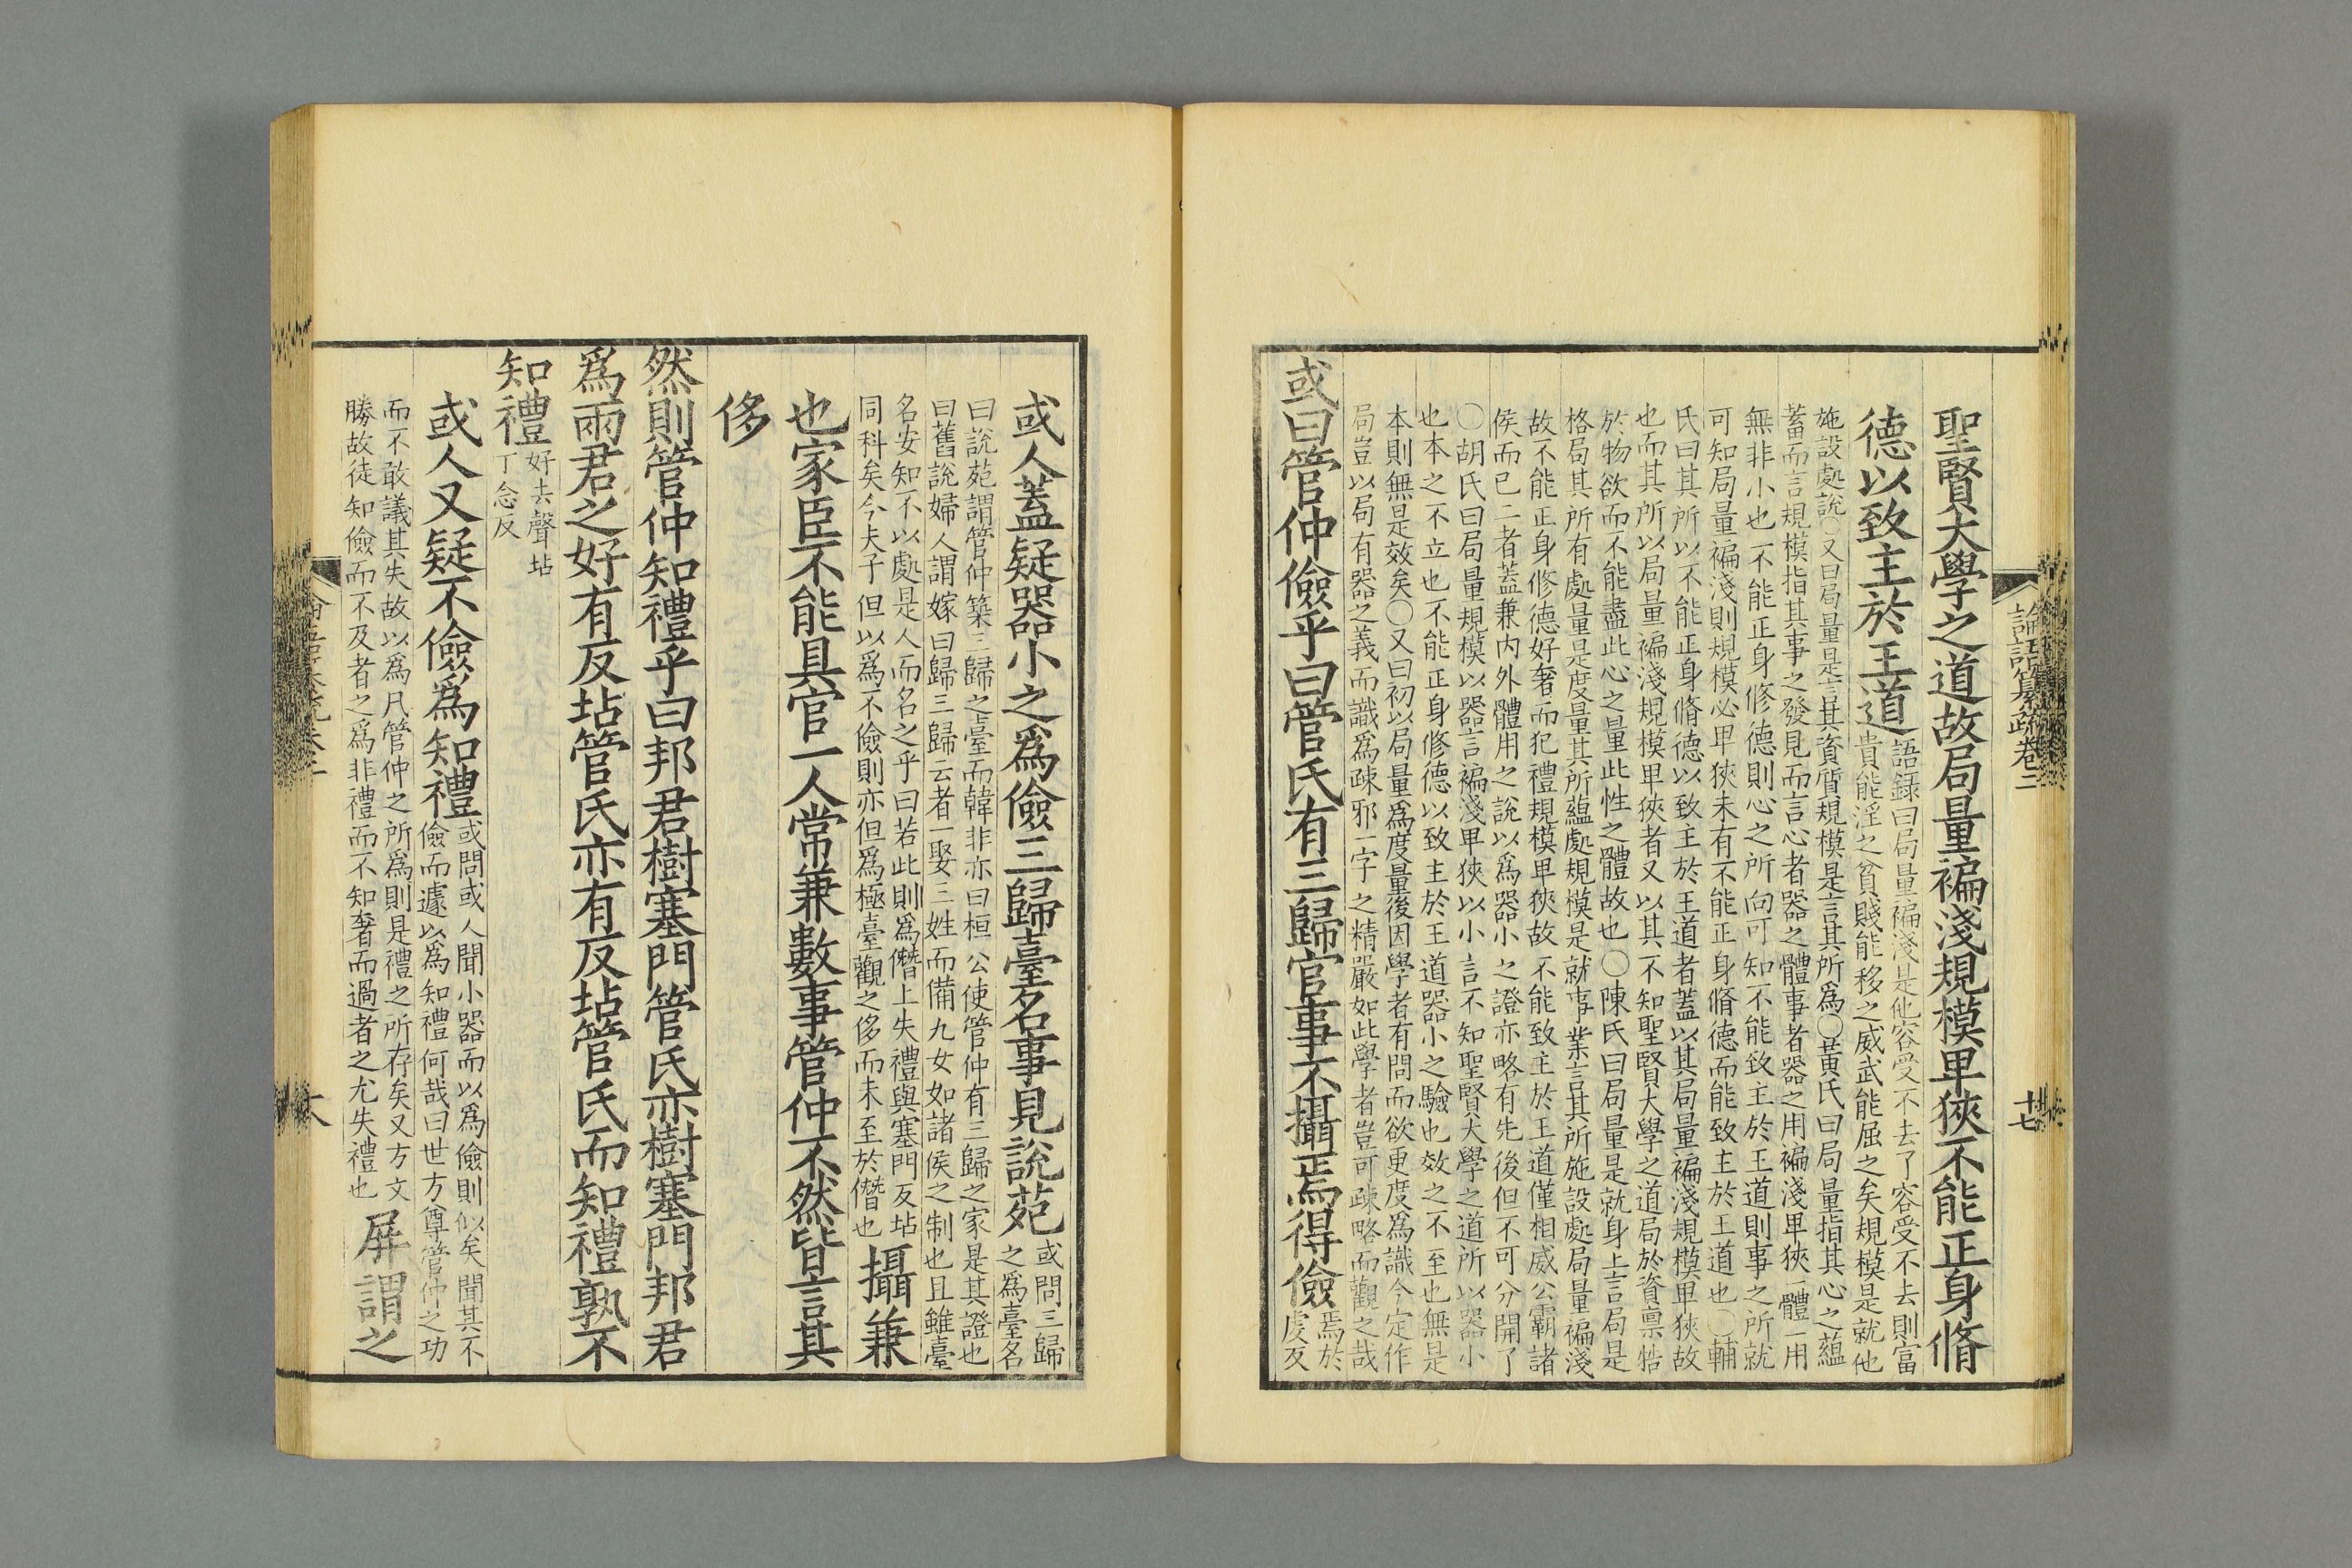 聖賢大學之道故局量褊淺規模卑狹不能正身脩
德以致主於王道
語録曰局量褊淺是他容受不去了容受不去則富
貴能淫之貧賤能移之威武能屈之矣規模是就他
施設處說○又曰局量是言其資質規模是言其所爲○黄氏曰局量指其心之蘊
蓄而言規模指其事之發見而言心者器之體事者器之用褊淺卑狹一體一用
無非小也不能正身修德則心之所向可知不能致主於王道則事之所就
可知局量褊淺則規模必卑狹未有不能正身脩德而能致主於王道也○輔
氏曰其所以不能正身脩德以致主於王道者蓋以其局量褊淺規模卑狹故
也而其所以局量褊淺規模卑狹者又以其不知聖賢大學之道局於資禀牿
於物欲而不能盡此心之量此性之體故也○陳氏曰局量是就身上言局是
格局其所有處量是度量其所蘊處規模是就事業言其所施設處局量褊淺
故不能正身修德好奢而犯禮規模卑狹故不能致主於王道僅相威公霸諸
侯而已二者蓋兼内外體用之說以爲器小之證亦略有先後但不可分開了
○胡氏曰局量規模以器言褊淺卑狹以小言不知聖賢大學之道所以器小
也本之不立也不能正身修德以致主於王道器小之驗也效之不至也無是
本則無是效矣○又曰初以局量爲度量後因學者有問而欲更度爲識今定作
局豈以局有器之義而識爲疎邪一字之精嚴如此學者豈可疎略而觀之哉
或曰管仲儉乎曰管氏有三歸官事不攝焉得儉
焉於
虔反
論語纂疏卷二
十七
或人蓋疑器小之爲儉三歸臺名事見說苑
或問三歸
之爲臺名
曰說苑謂管仲築三歸之臺而韓非亦曰桓公使管仲有三歸之家是其證也
曰舊說婦人謂嫁曰歸三歸云者一娶三姓而備九女如諸侯之制也且雖臺
名安知不以處是人而名之乎曰若此則爲僭上失禮與塞門反坫
同科矣今夫子但以爲不儉則亦但爲極臺觀之侈而未至於僭也
攝兼
也家臣不能具官一人常兼數事管仲不然皆言其
侈
然則管仲知禮乎曰邦君樹塞門管氏亦樹塞門邦君
爲兩君之好有反坫管氏亦有反坫管氏而知禮孰不
知禮
好去聲坫
丁念反
或人又疑不儉爲知禮
或問或人聞小器而以爲儉則似矣聞其不
儉而遽以爲知禮何哉曰世方尊管仲之功
而不敢議其失故以爲凡管仲之所爲則是禮之所存矣又方文
勝故徒知儉而不及者之爲非禮而不知奢而過者之尤失禮也
屏謂之